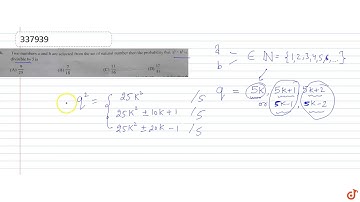 337939
Two numbers a and b are selected from the set of natural number then the probability that a² + b² is
divisible by 5 is
(A) 9/25 (B) 7/18 (C) 11/36 (D) 17/81
a
b ∈ ℕ = {1,2,3,4,5,6,...}
q = 5K, 5K+1, 5K+2
or 5K-1, 5K-2
q² = { 25K² /5
25K² ± 10K + 1 /5
25K² ± 20K - 1 /5